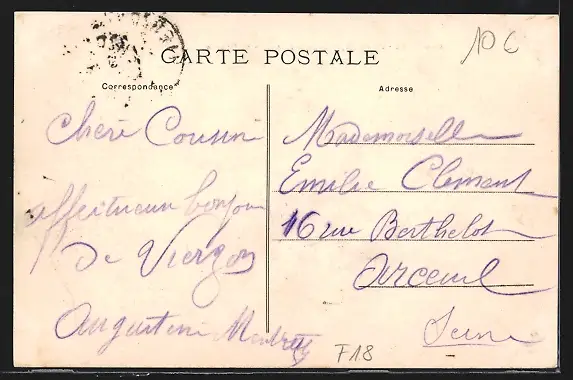 CARTE POSTALE
10 6
Correspondance
Chère Cousine
affectueux bonjour
de Vierzon
Augustine
Adresse
Mademoiselle
Emilie Clement
16 rue Berthelot
Arceuil
Seine
F18